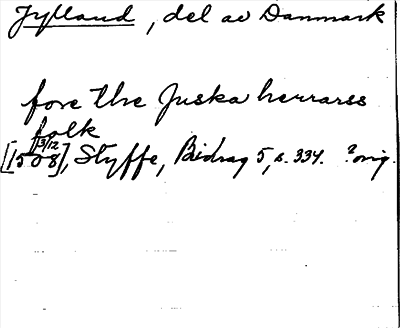 Jylland, del av Danmark
fore the Juska herrarss
folk
13/12
[1508], Styffe, Bidrag 5, s. 334. ?orig.